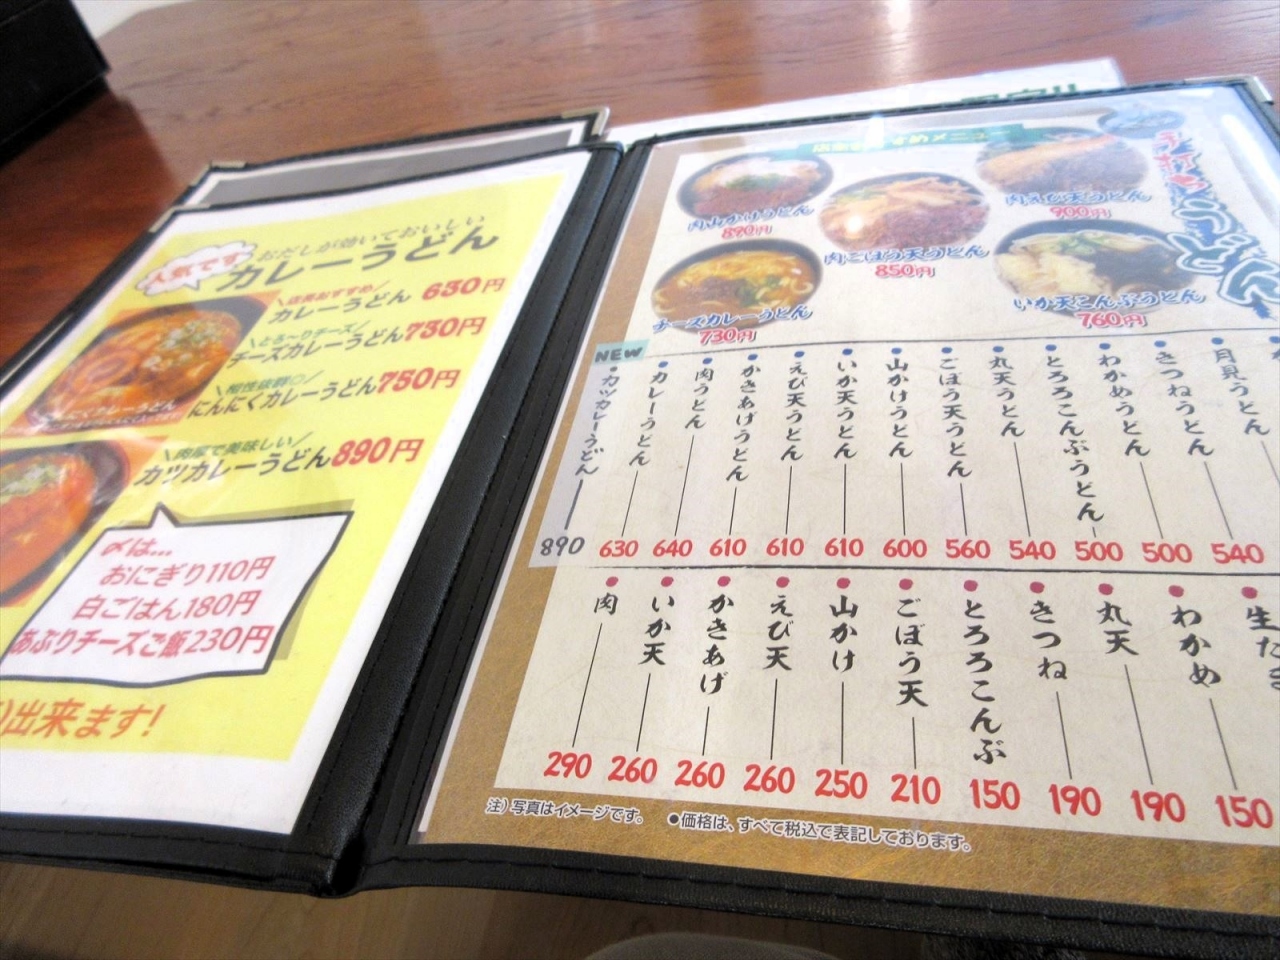 人気です
おだしが効いておいしい
カレーうどん
店長おすすめ
カレーうどん 630円
とろ～りチーズ
チーズカレーうどん730円
相性抜群◎
にんにくカレーうどん750円
肉厚で美味しい
カツカレーうどん890円
にんにくカレーうどん
〆は…
おにぎり110円
白ごはん180円
あぶりチーズご飯230円
出来ます!
すめメニュー
手打ちうどん
肉山かけうどん
890円
肉ごぼう天うどん
850円
肉えび天うどん
900円
チーズカレーうどん
730円
いか天こんぶうどん
760円
NEW
カツカレーうどん 890
カレーうどん 630
肉うどん 640
かきあげうどん 610
えび天うどん 610
いか天うどん 610
山かけうどん 600
ごぼう天うどん 560
丸天うどん 540
とろろこんぶうどん 500
わかめうどん 500
きつねうどん 540
月見うどん
肉 290
いか天 260
かきあげ 260
えび天 260
山かけ 250
ごぼう天 210
とろろこんぶ 150
きつね 190
丸天 190
わかめ 150
生た
注)写真はイメージです。 ●価格は、すべて税込で表記しております。